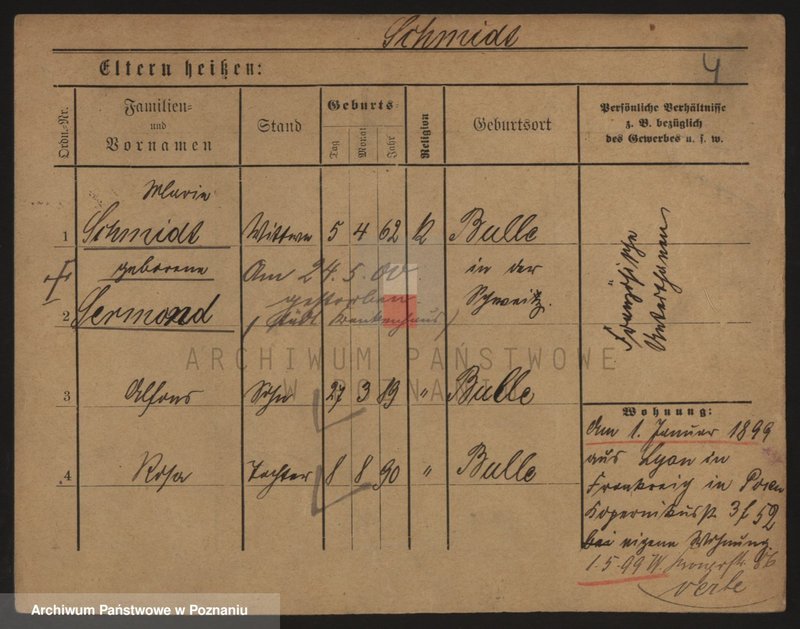 Schmidt
4
Eltern heißen:
Ordn.-Nr.
Familien=
und
Vornamen
Stand
Geburts=
Tag
Monat
Jahr
Religion
Geburtsort
Persönliche Verhältnisse
z. B. bezüglich
des Gewerbes u. s. w.
Marie
1 Schmidt Wittwe 5 4 62 K Bulle
geborene Am 24.5.00 in der
gestorben Schweitz.
2 Sermond (Städt. Krankenhaus)
Französische
Unterthanen
ARCHIWUM PAŃSTWOWE
W POZNANIU
3 Alfons Sohn 27 3 89 " Bulle
4 Rosa Tochter 8 8 90 " Bulle
Wohnung:
Am 1. Januar 1899
aus Lyon in
Frankreich in Posen
Kopernikusst. 3 f 52
bei eigene Wohnung
1.5.99
Archiwum Państwowe w Poznaniu